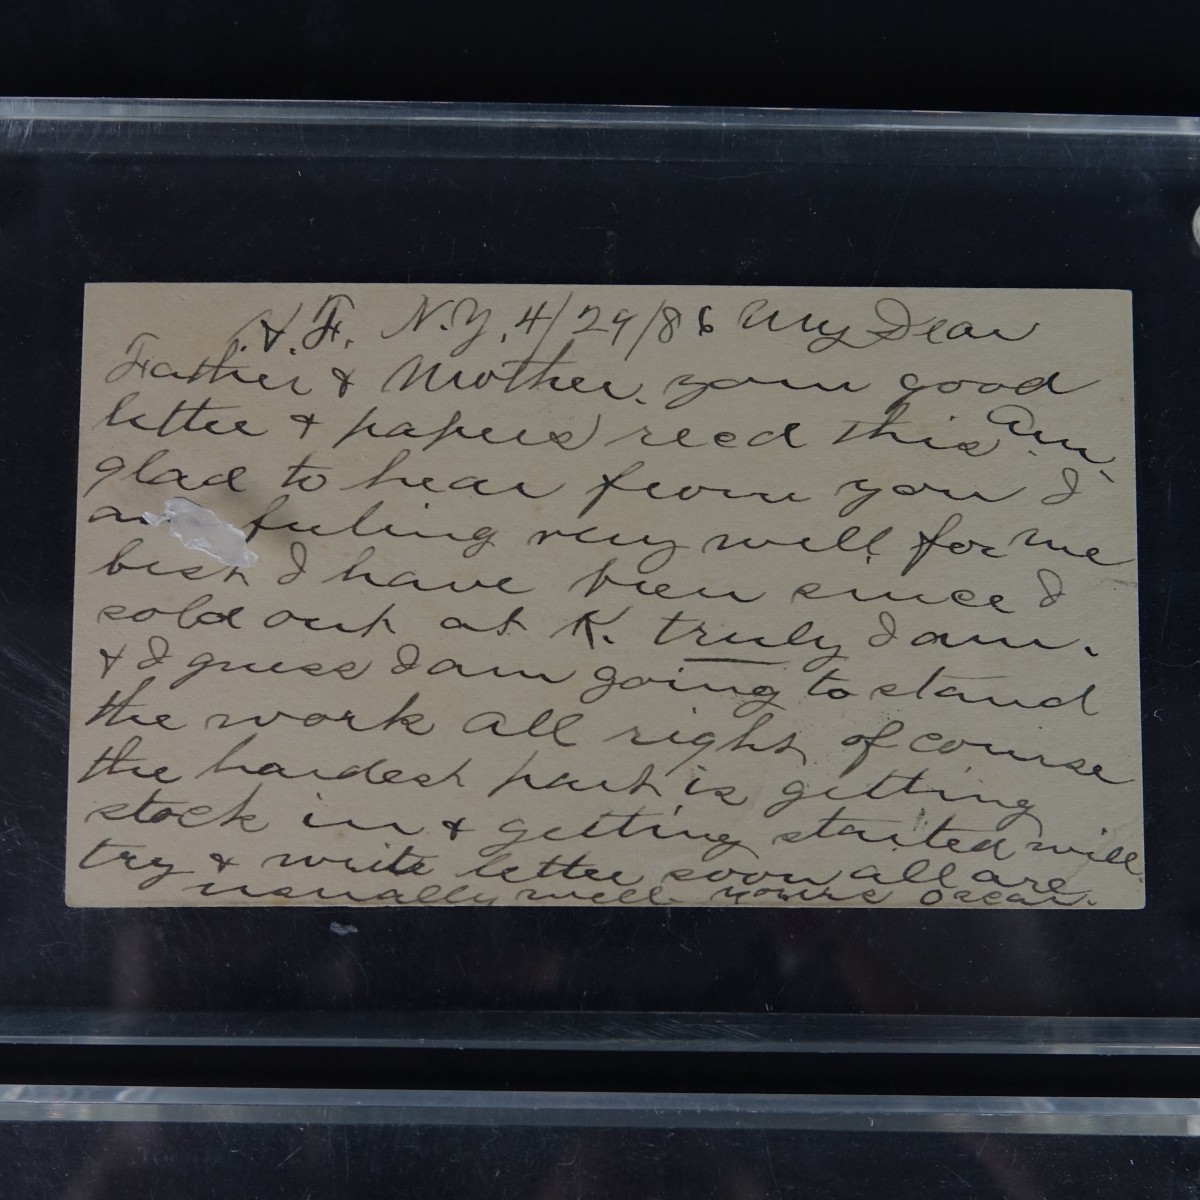 H. F. N.Y. 4/29/86 My Dear
Father & Mother. your good
letter & papers recd this Am.
glad to hear from you I
feeling very well for me
best I have been since I
sold out at K. truly I am.
& I guess I am going to stand
the work all right of course
the hardest part is getting
stock in & getting started will
try & write letter soon all are
usually well. yours Oscar.